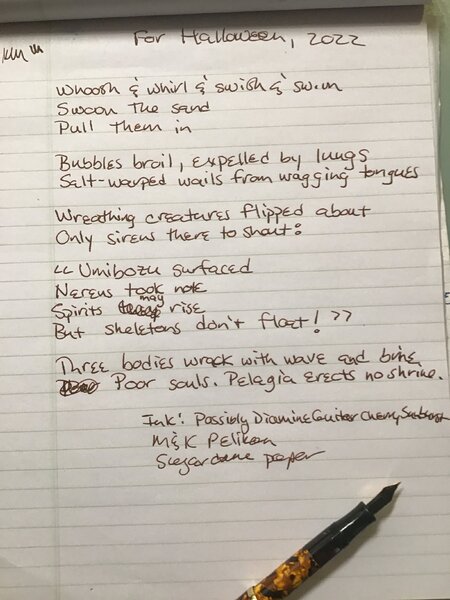 For Halloween, 2022
Whoosh & whirl & swish & swim
Swoon the sand
Pull them in
Bubbles broil, expelled by lungs
Salt-warped wails from wagging tongues
Wreathing creatures flipped about
Only sirens there to shout:
<< Umibozu surfaced
Nereus took note
Spirits may rise
But skeletons don't float! >>
Three bodies wrack with wave and brine
Poor souls. Pelagia erects no shrine.
Ink: Possibly Diamine Guitar Cherry Sunburst
M&K Pelikan
Sugarcane paper